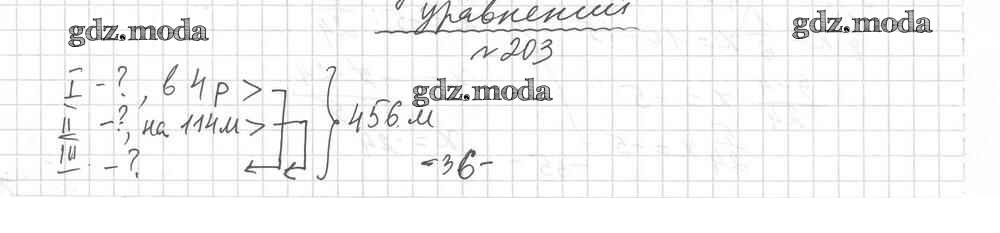 уравнений
gdz.moda
gdz.moda
№203
I - ?, в 4 р >
gdz.moda
II - ?, на 114 м >
456 м
III. - ?
-36-